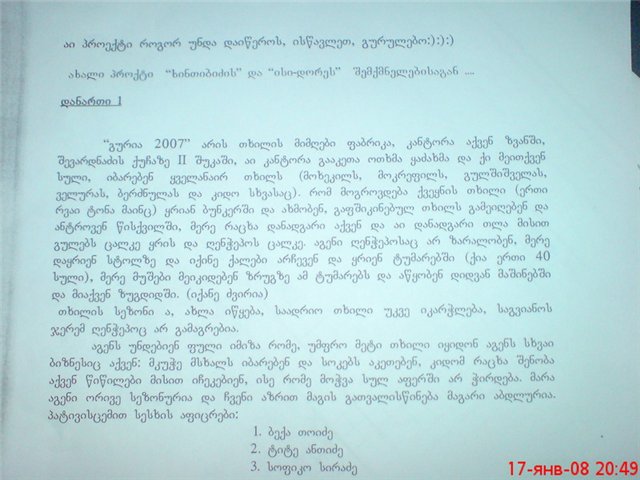 აი პროექტი როგორ უნდა დაიწეროს, ისწავლეთ, გურულებო:):):)
ახალი პროქტი "ხინთიბიძის" და "ისი-დორეს" შემქმნელებისაგან ....
დანართი 1
"გურია 2007" არის თხილის მიმღები ფაბრიკა, კანტორა აქვენ ზვანში,
შევარდნაძის ქუჩაზე II შუკაში, აი კანტორა გააკეთა ოთხმა ყაძახმა და ქი მეითქვენ
სული, იბარებენ ყველანაირ თხილს (მოხეკილს, მოკრეფილს, გულშიშველას,
ველურას, ბერძნულას და კიდო სხვასაც). რომ მოგროვდება ქვეყნის თხილი (ერთი
რვაი ტონა მაინც) ყრიან ბუნკერში და ახმობენ, გაფშიკინებულ თხილს გამეიღებენ და
ანტროვენ წისქვილში, მერე რაცხა დანადგარი აქვენ და აი დანადგარი თლა მისით
გულებს ცალკე ყრის და ღენჭეპოს ცალკე. აგენი ღენჭეპოსაც არ ზარალობენ, მერე
დაყრიენ სტოლზე და იქინე ქალები არჩევენ და ყრიენ ტუმარებში (ქია ერთი 40
სული), მერე მუშები მეიკიდებენ ზრუგზე ამ ტუმარებს და აწყობენ დიდვან მაშინებში
და მიაქვენ ზუგდიდში. (იქანე ძვირია)
თხილის სეზონი ა, ახლა იწყება, საადრიო თხილი უკვე იკარჭლება, საგვიანოს
ჯერემ ღენჭეპოც არ გამაგრებია.
აგენს უნდებიენ ფული იმიზა რომე, უმფრო მეტი თხილი იყიდონ აგენს სხვაი
ბიზნესიც აქვენ: მკუჭე მსხალს იბარებენ და სოკებს აკეთებენ, კიდომ რაცხა შენობა
აქვენ წიწილები მისით იჩეკებიენ, ისე რომე მოჭვა სულ აფერში არ ჭირდება. მარა
აგენი ორივე სეზონურია და ჩვენი აზრით მაგის გათვალისწინება მაგარი აბდლურია.
პატივისცემით სესხის აფიცრები:
1. ბექა თოიძე
2. ტიტე ანთიძე
3. სოფიკო სირაძე
17-янв-08 20:49